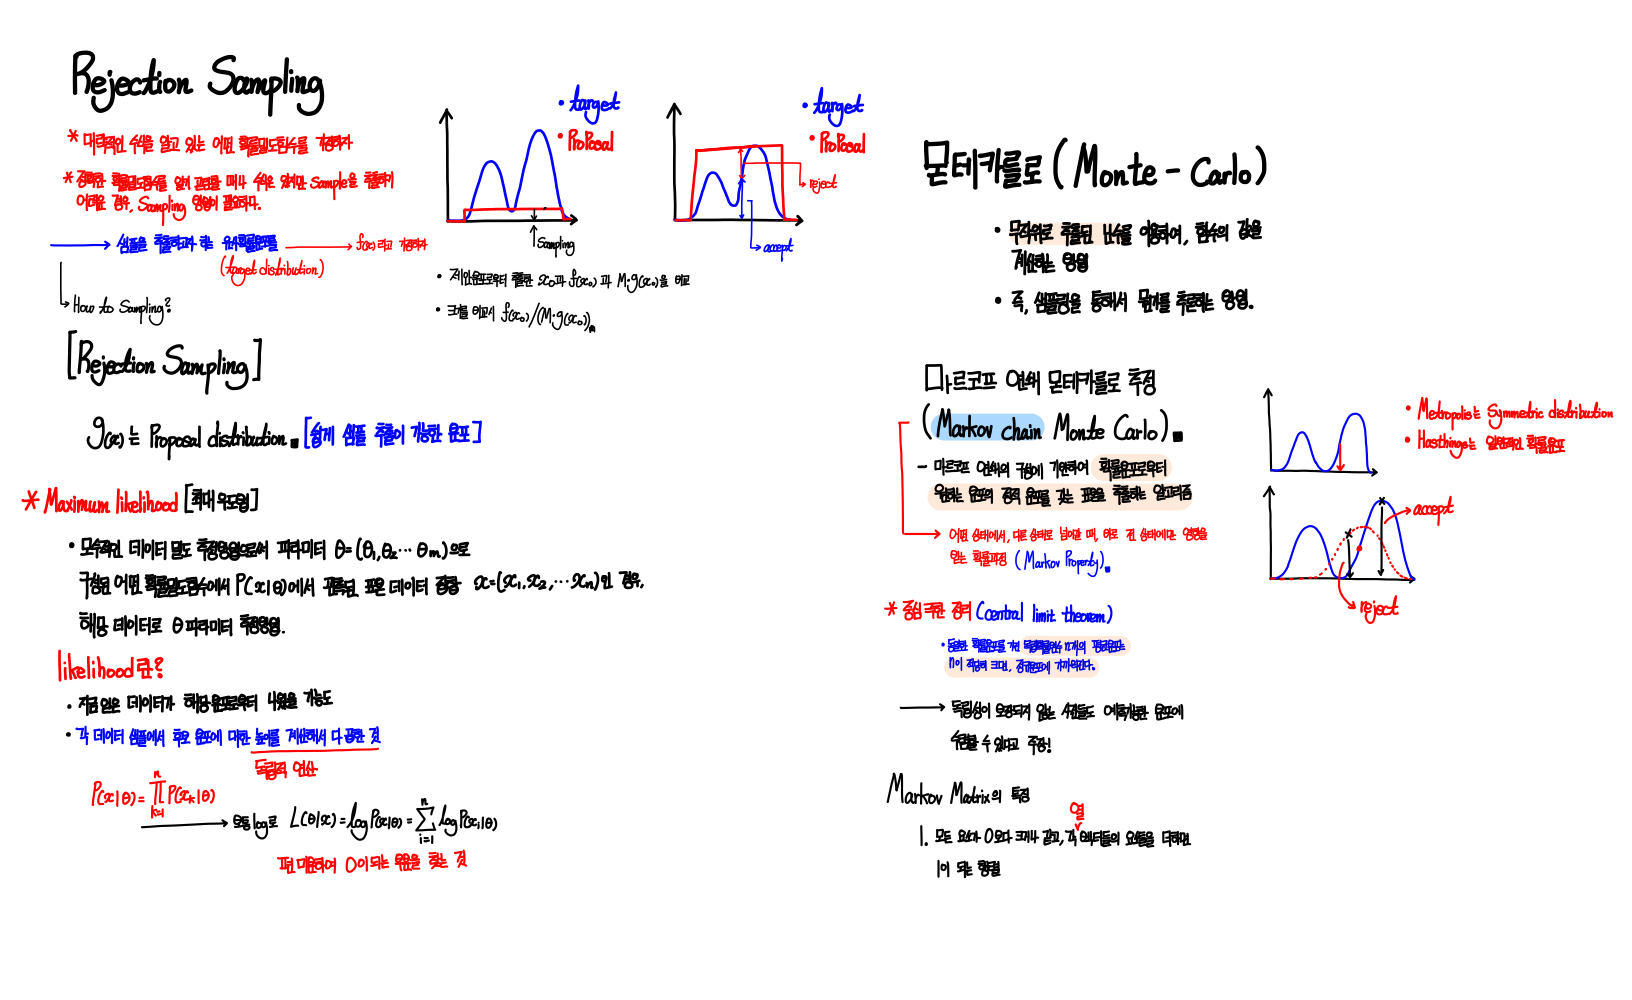 Rejection Sampling
* 대략적인 수식을 알고 있는 어떤 확률밀도함수를 가정하자
* 정확한 확률밀도함수를 알기 곤란할 때나 수식은 있지만 Sample을 추출하기
어려운 경우, Sampling 방법이 필요하다.
샘플을 추출하고자 하는 원시확률분포를
f(x) 라고 가정하자
(target distribution)
How to Sampling?
[Rejection Sampling]
g(x)는 Proposal distribution. [쉽게 샘플 추출이 가능한 분포]
• target
• Proposal
Sampling
• target
• Proposal
reject
accept
• 제안분포로부터 추출한 x₀과 f(x₀) 과 M·g(x₀)을 비교
• 크기를 비교시 f(x₀)/(M·g(x₀))
* Maximum likelihood [최대 우도법]
• 모수적인 데이터 밀도 추정방법으로써 파라미터 θ=(θ₁,θ₂… θm)으로
구성된 어떤 확률밀도함수에서 P(x|θ)에서 관측된 표본 데이터 집합 x=(x₁,x₂,…xn)인 경우,
해당 데이터로 θ 파라미터 추정방법.
likelihood란?
• 지금 얻은 데이터가 해당 분포로부터 나왔을 가능도
• 각 데이터 샘플에서 후보 분포에 대한 높이를 계산해서 다 곱한 것
독립적 연산
P(x|θ) = ∏ₖ₌₁ⁿ P(xₖ|θ)
보통 log로 L(θ|x) = log P(x|θ) = ∑ᵢ₌₁ⁿ log P(xᵢ|θ)
편미분하여 0이 되는 부분을 찾는 것
몬테카를로 (Monte - Carlo)
• 무작위로 추출된 난수를 이용하여, 함수의 값을
계산하는 방법
• 즉, 샘플링을 통해서 문제를 추론하는 방법.
마르코프 연쇄 몬테카를로 추정
(Markov chain Monte Carlo).
- 마르코프 연쇄의 구성에 기반하여 확률분포로부터
원하는 분포의 정적 분포를 갖는 표본을 추출하는 알고리즘
어떤 상태에서, 다른 상태로 넘어갈 때, 바로 전 상태에만 영향을
받는 확률과정 (Markov Property).
• Metropolis는 Symmetric distribution
• Hasthings는 일반적인 확률분포
accept
reject
* 중심 극한 정리 (central limit theorem)
• 동일한 확률분포를 가진 독립확률변수 n개의 평균분포는
n이 적당히 크면, 정규분포에 가까워진다.
독립성이 보장되지 않는 사건들도 예측가능한 분포에
수렴할 수 있다고 주장!
Markov Matrix의 특징
열
1. 모든 요소가 0보다 크거나 같고, 각 벡터들의 요소들을 더하면
1이 되는 행렬